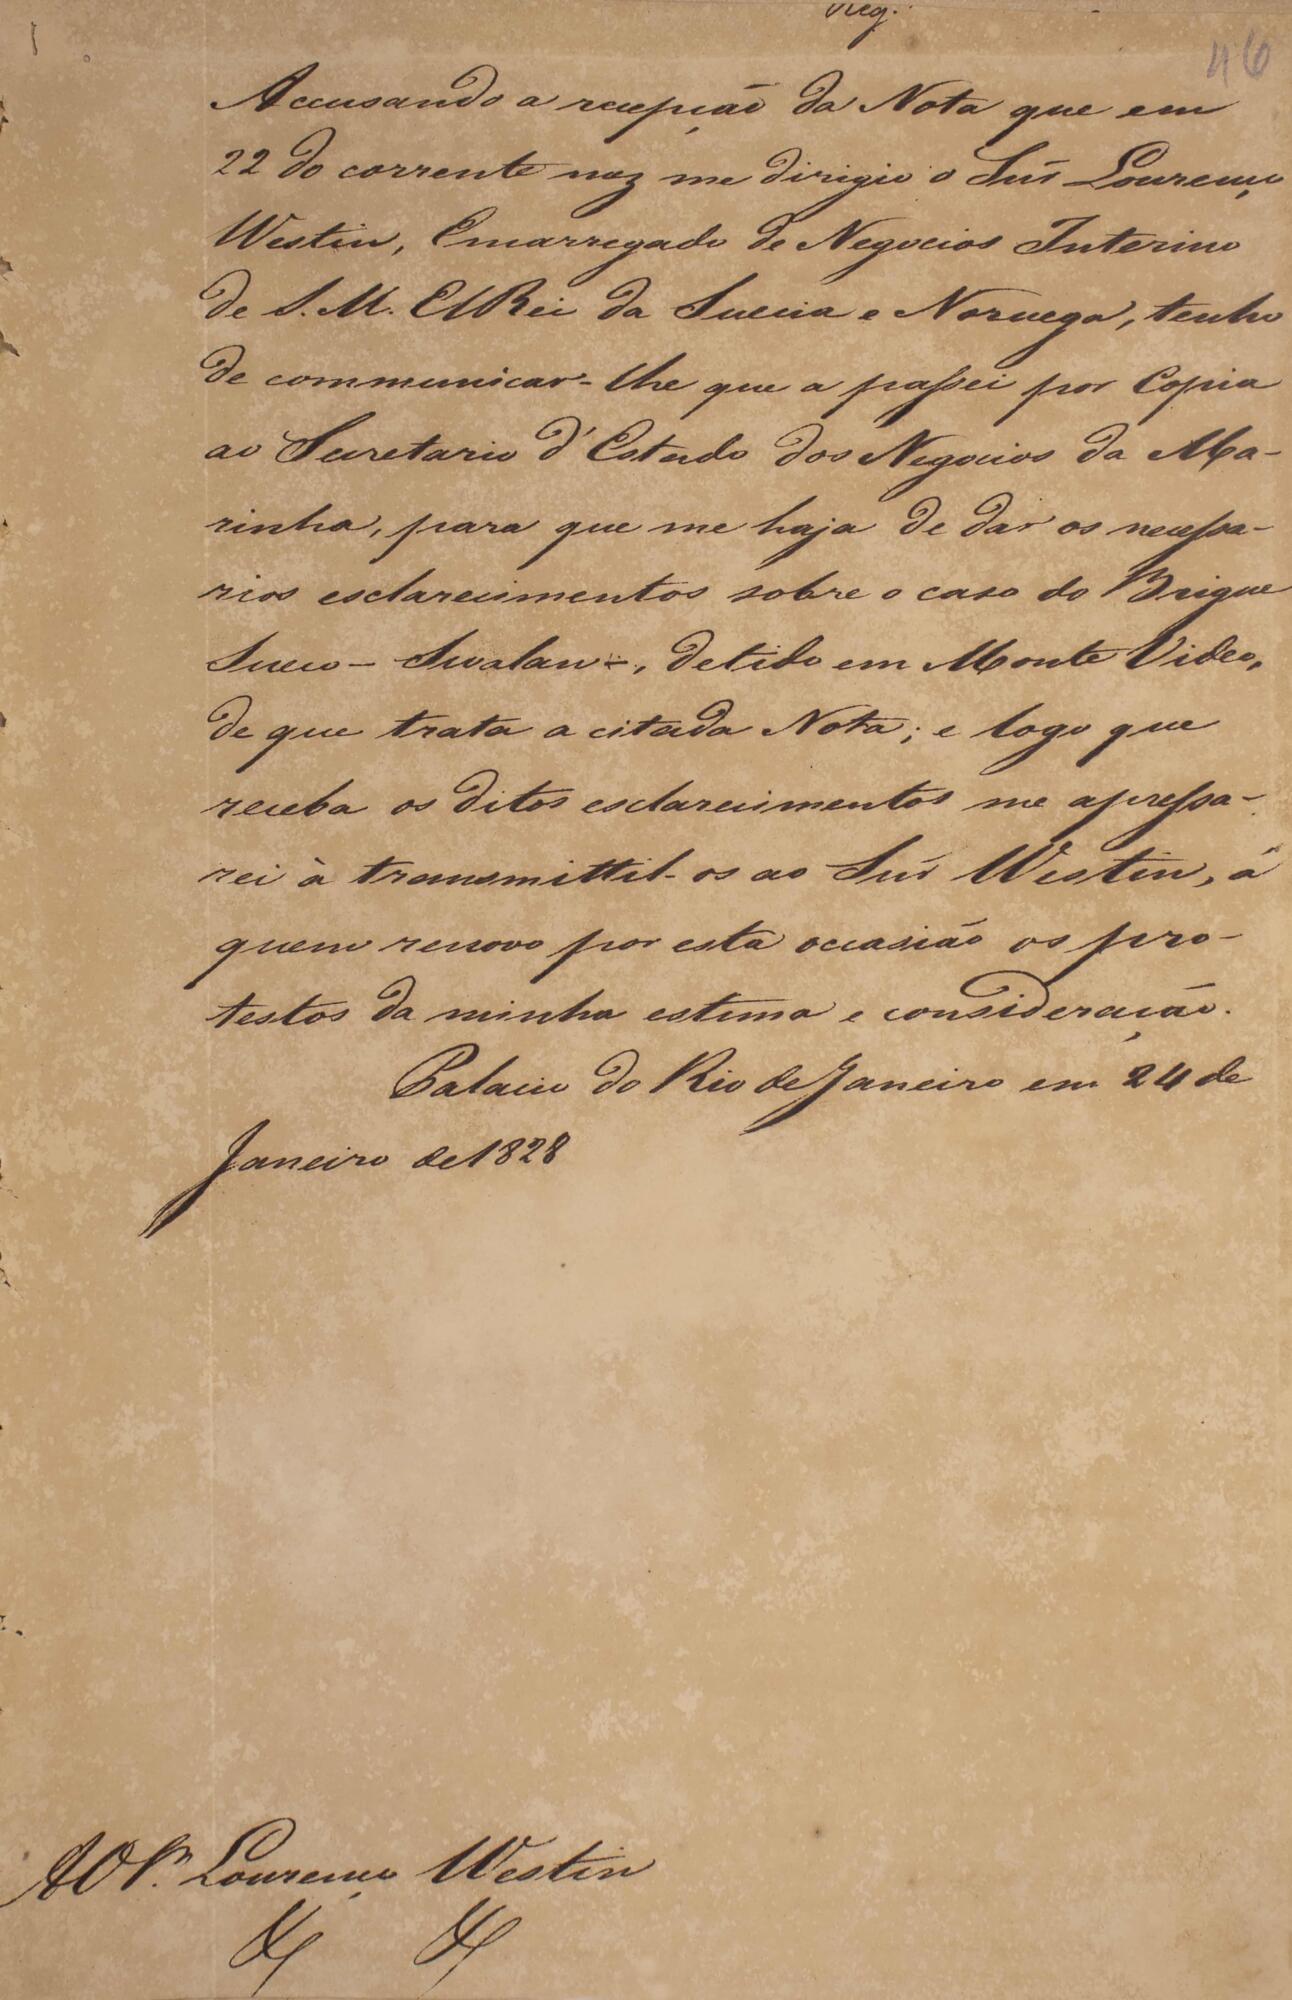 Reg.
46
Accusando a recepção da Nota que em
22 do corrente mez me dirigio o Snr̃ Lourenço
Westin, Encarregado de Negocios Interino
de S. M. ElRei da Suecia e Noruega, tenho
de communicar-lhe que a passei por Copia
ao Secretario d'Estado dos Negocios da Ma-
rinha, para que me haja de dar os necessa-
rios esclarecimentos sobre o caso do Brigue
Sueco - Swalan -, detido em Monte Video,
de que trata a citada Nota; e logo que
receba os ditos esclarecimentos me apressa-
rei à transmittil-os ao Snr̃ Westin, á
quem renovo por esta occasião os pro-
testos da minha estima e consideração.
Palacio do Rio de Janeiro em 24 de
Janeiro de 1828
Lourenço Westin